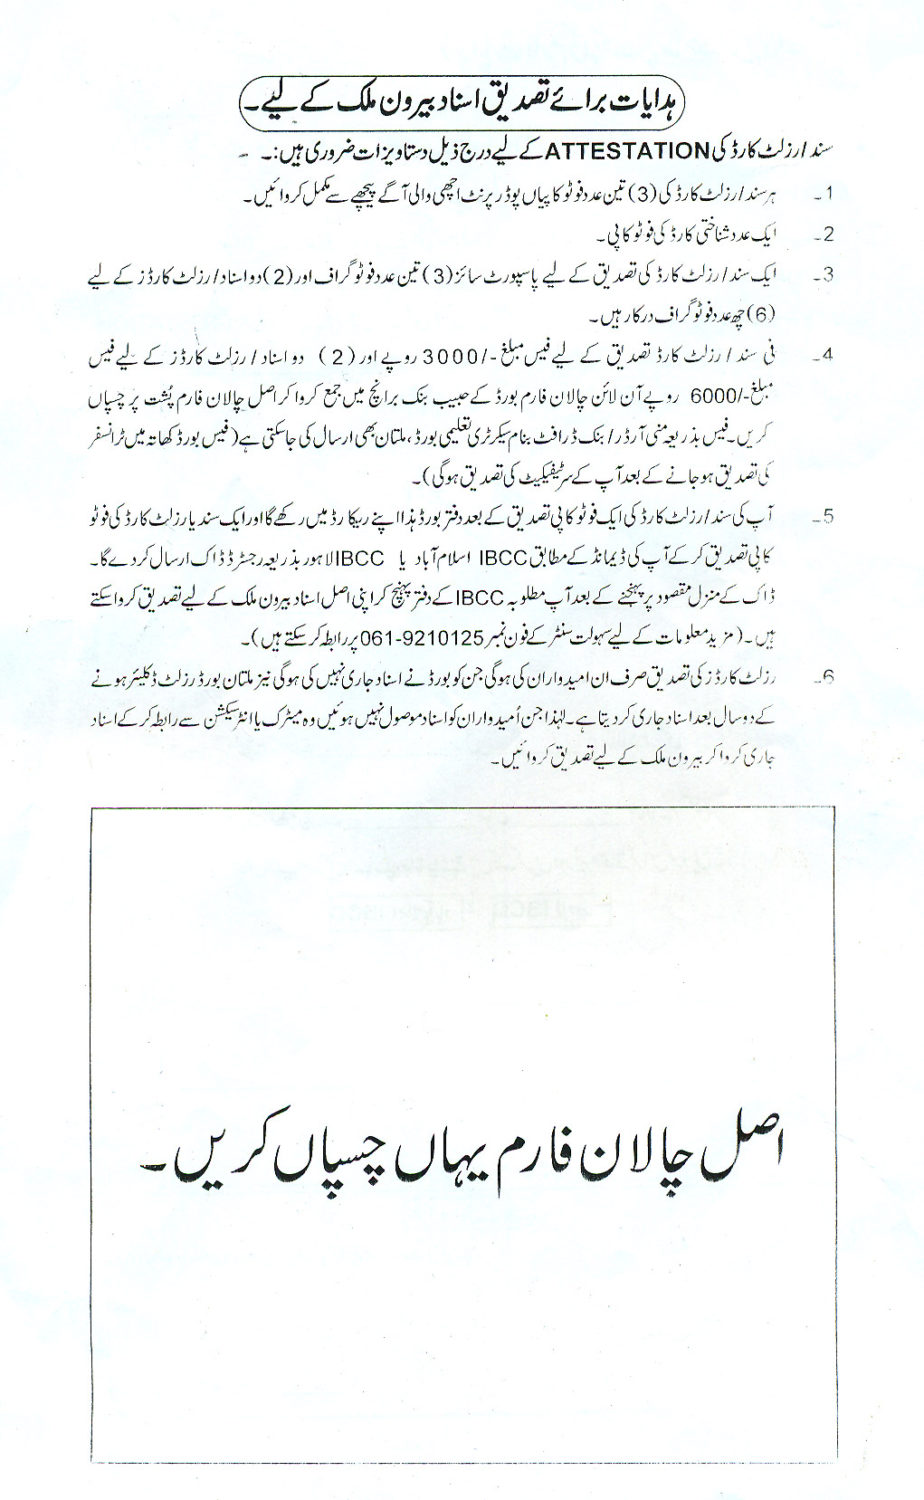 ہدایات برائے تصدیق اسناد بیرون ملک کے لیے۔
سند/رزلٹ کارڈ کی ATTESTATION کے لیے درج ذیل دستاویزات ضروری ہیں:۔ -
1۔ ہر سند/رزلٹ کارڈ کی (3) تین عدد فوٹو کاپیاں پوڈر پرنٹ اچھی والی آگے پیچھے سے مکمل کروائیں۔
2۔ ایک عدد شناختی کارڈ کی فوٹو کاپی۔
3۔ ایک سند/رزلٹ کارڈ کی تصدیق کے لیے پاسپورٹ سائز (3) تین عدد فوٹو گراف اور (2) دو اسناد/رزلٹ کارڈز کے لیے
(6) چھ عدد فوٹو گراف درکار ہیں۔
4۔ فی سند / رزلٹ کارڈ تصدیق کے لیے فیس مبلغ -/3000 روپے اور (2) دو اسناد/ رزلٹ کارڈز کے لیے فیس
مبلغ -/6000 روپے آن لائن چالان فارم بورڈ کے حبیب بنک برانچ میں جمع کروا کر اصل چالان فارم پُشت پر چسپاں
کریں۔ فیس بذریعہ منی آرڈر/ بنک ڈرافٹ بنام سیکرٹری تعلیمی بورڈ، ملتان بھی ارسال کی جاسکتی ہے (فیس بورڈ کھاتہ میں ٹرانسفر
کی تصدیق ہو جانے کے بعد آپ کے سرٹیفکیٹ کی تصدیق ہوگی)۔
5۔ آپ کی سند/رزلٹ کارڈ کی ایک فوٹو کاپی تصدیق کے بعد دفتر بورڈ ہذا اپنے ریکارڈ میں رکھے گا اور ایک سند یا رزلٹ کارڈ کی فوٹو
کاپی تصدیق کر کے آپ کی ڈیمانڈ کے مطابق IBCC اسلام آباد یا IBCC لاہور بذریعہ رجسٹرڈ ڈاک ارسال کر دے گا۔
ڈاک کے منزل مقصود پر پہنچنے کے بعد آپ مطلوبہ IBCC کے دفتر پہنچ کر اپنی اصل اسناد بیرون ملک کے لیے تصدیق کروا سکتے
ہیں۔ (مزید معلومات کے لیے سہولت سنٹر کے فون نمبر 061-9210125 پر رابطہ کر سکتے ہیں)۔
6۔ رزلٹ کارڈز کی تصدیق صرف ان امیدواران کی ہوگی جن کو بورڈ نے اسناد جاری نہیں کی ہوگی نیز ملتان بورڈ رزلٹ ڈکلیئر ہونے
کے دو سال بعد اسناد جاری کر دیتا ہے۔ لہٰذا جن اُمیدواران کو اسناد موصول نہیں ہوئیں وہ میٹرک یا انٹر سیکشن سے رابطہ کر کے اسناد
جاری کروا کر بیرون ملک کے لیے تصدیق کروائیں۔
اصل چالان فارم یہاں چسپاں کریں۔